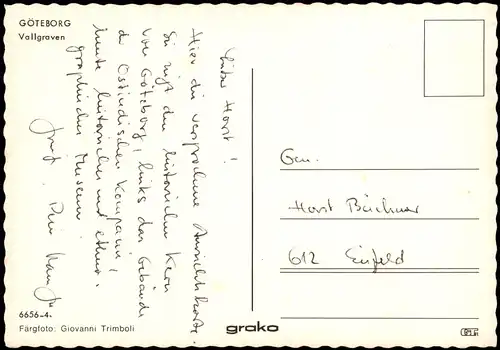 GÖTEBORG
Vallgraven
Lieber Horst!
Hier die versprochene Ansichtskarte.
Sie zeigt den historischen Kern
von Göteborg, links das Gebäude
der Ostindischen Kompanie,
heute historisches und ethno-
graphisches Museum.
Dein
6656-4.
Färgfoto: Giovanni Trimboli
grako
Gen.
Horst
612 Eisfeld